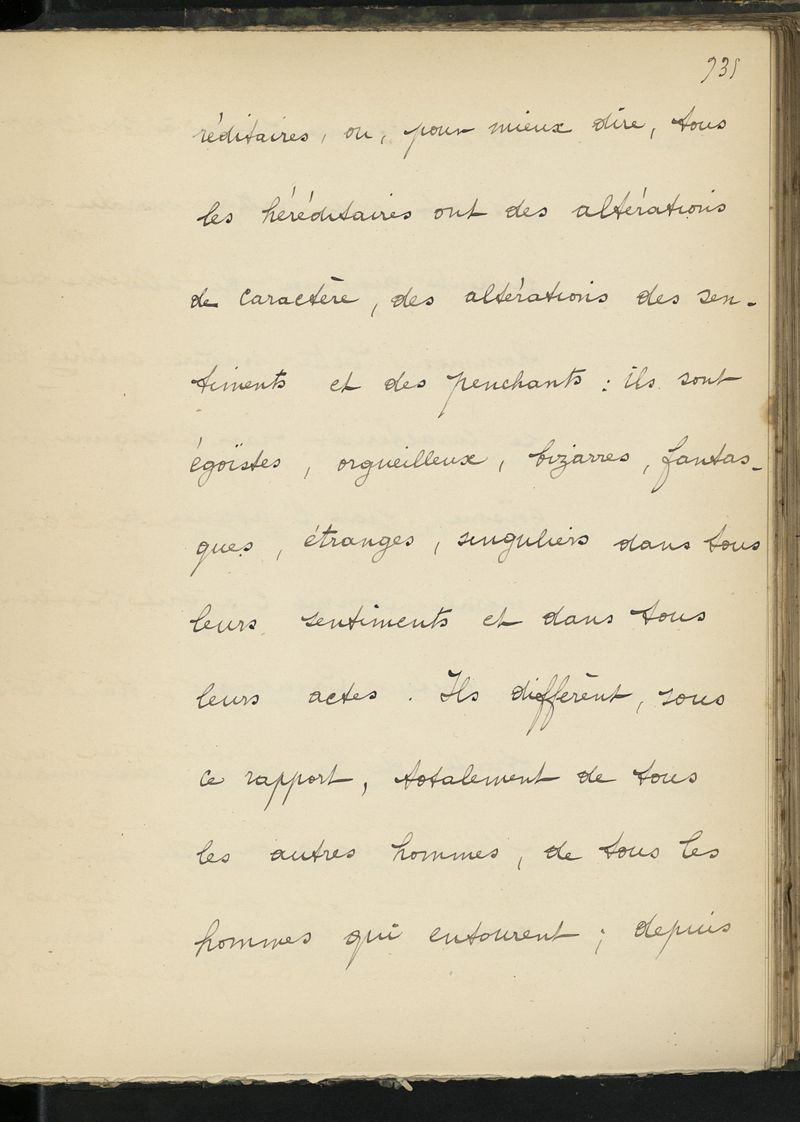 935
réditaires, ou, pour mieux dire, tous
les héréditaires ont des altérations
de caractère, des altérations des sen-
timents et des penchants : ils sont
égoïstes, orgueilleux, bizarres, fantas-
ques, étranges, singuliers dans tous
leurs sentiments et dans tous
leurs actes. Ils diffèrent, sous
ce rapport, totalement de tous
les autres hommes, de tous les
hommes qui entourent ; depuis